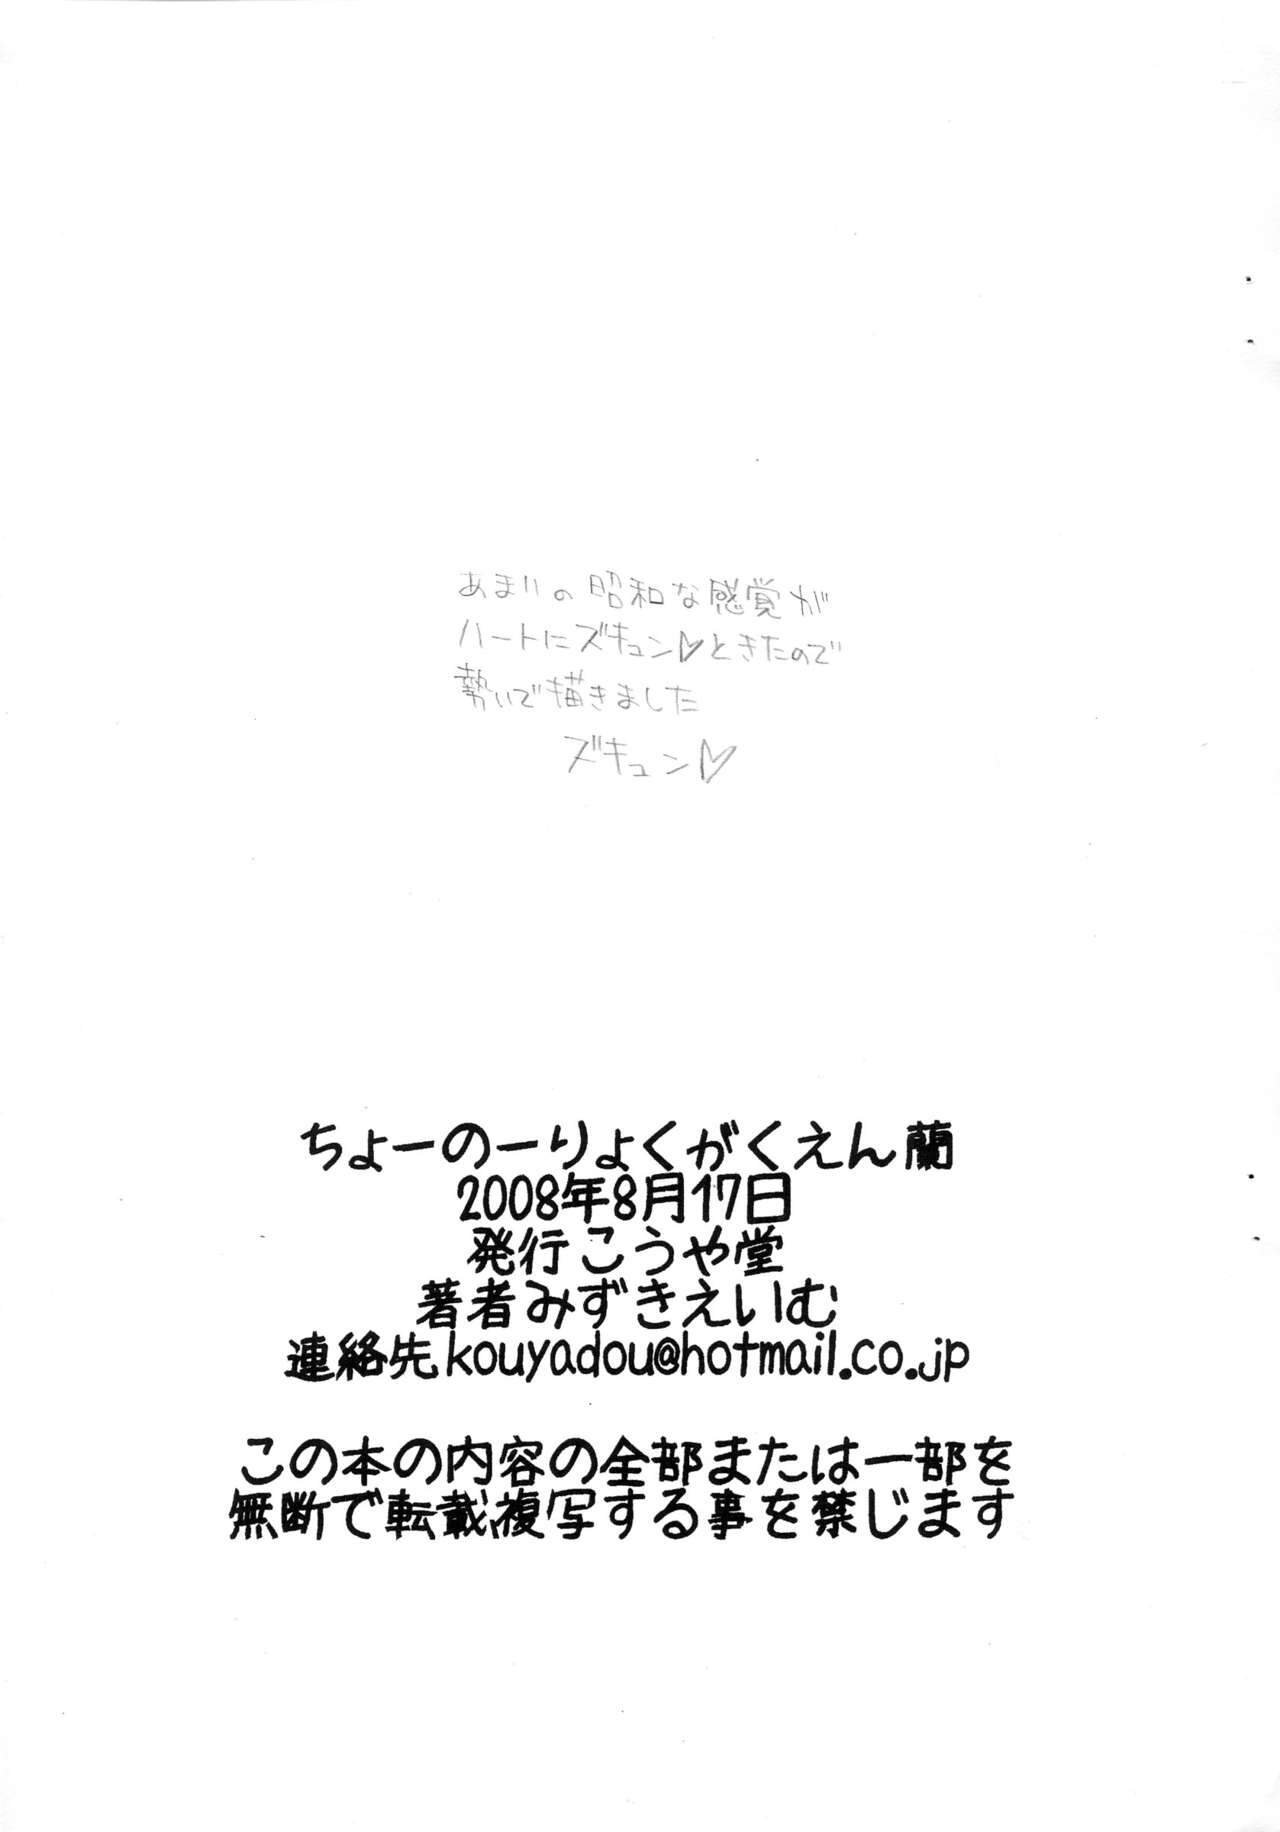 あまりの昭和な感覚が
ハートにズキュン♡ときたので
勢いで描きました
ズキュン♡
ちょーのーりょくがくえん蘭
2008年8月17日
発行こうや堂
著者みずきえいむ
連絡先kouyadou@hotmail.co.jp
この本の内容の全部または一部を
無断で転載、複写する事を禁じます